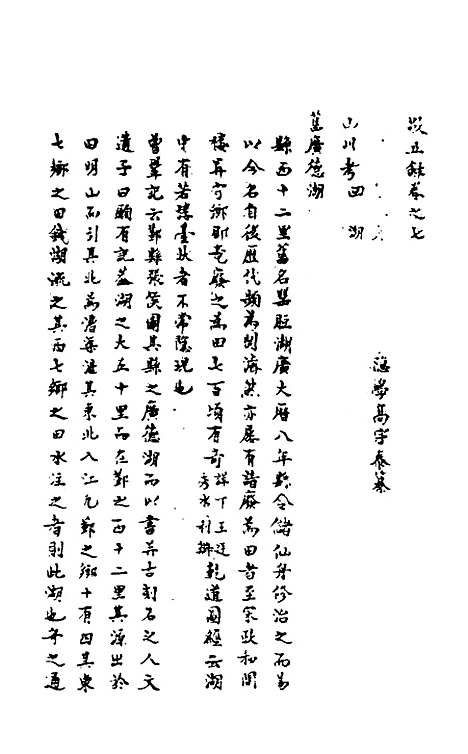 敬止録卷之七
隱學高宇泰纂
山川考四 湖
舊廣德湖
縣西十二里舊名罌脰湖唐大曆八年縣令儲仙舟修治之而易
以今名自後歷代頗為開濬然亦屢有請廢為田者至宋政和間
樓异守鄉郡竟廢之為田七百頃有奇詳丁王廷秀水利辨乾道圖經云湖
中有若樓臺狀者不常隱現也
曾鞏記云鄞縣張侯圖其縣之廣德湖而以書并古刻石之人文
遺予曰願有記盖湖之大五十里而在鄞之西十二里其源出於
四明山而引其北為漕渠泄其東北入江凡鄞之鄉十有四其東
七鄉之田錢湖溉之其西七鄉之田水注之者則此湖也舟之通